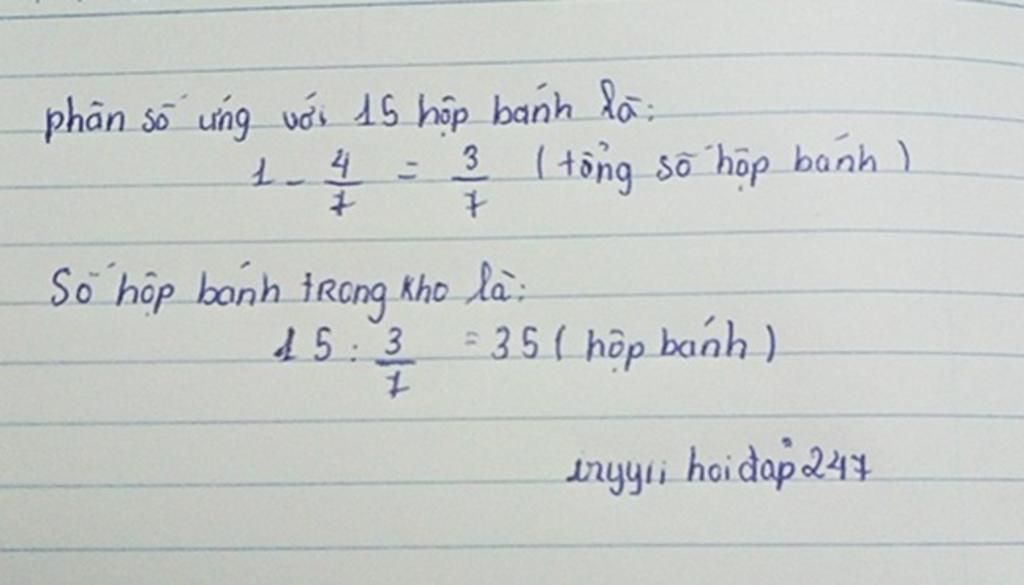 phân số ứng với 15 hộp bánh là:
1 - 4/7 = 3/7 (tổng số hộp bánh)
Số hộp bánh trong kho là:
15 : 3/7 = 35 (hộp bánh)
hoidap247